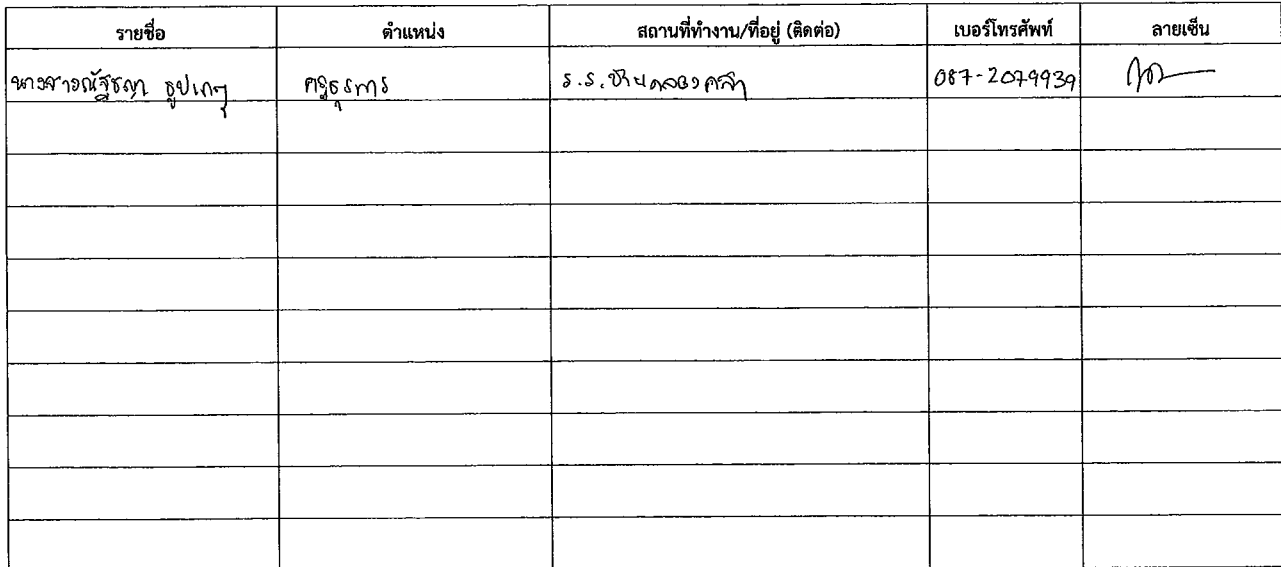 รายชื่อ ตำแหน่ง สถานที่ทำงาน/ที่อยู่ (ติดต่อ) เบอร์โทรศัพท์ ลายเซ็น
นางสาวณัฐชญา ธูปเกตุ ครูธุรการ ร.ร.บ้านคลองคล้า 087-2079939